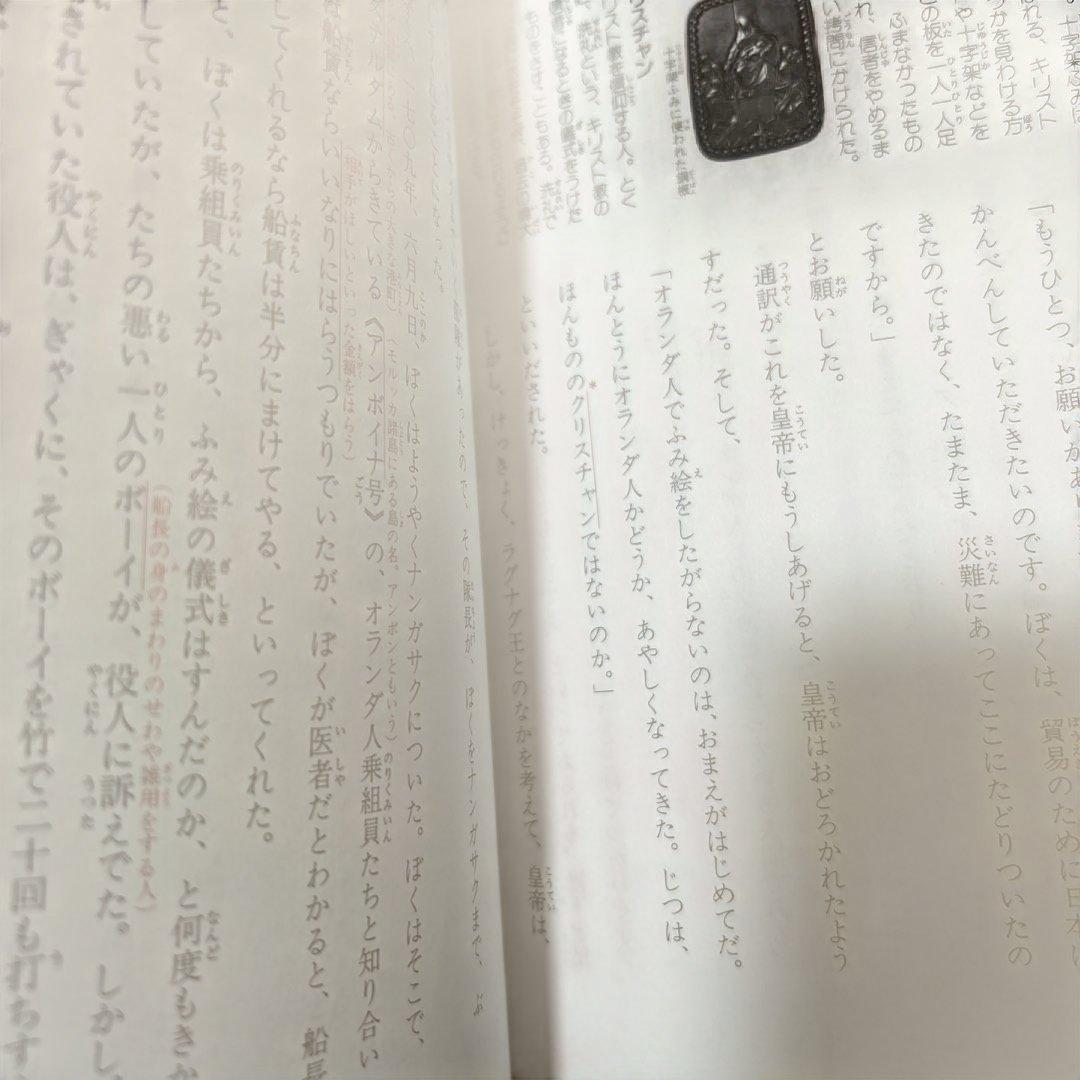 。十字架ふみに
れる、キリスト
や十字架などを
らかを見わける方
この板を一人一人足
ふまなかったもの
れ、信者をやめるま
い拷問にかけられた。
十字架ふみに使われた
リスチャン
リスト教を信仰する人。とく
に、洗礼という、キリスト教の
信者になるときの儀式をうけた
「もうひとつ、お願いがあ
かんべんしていただきたいのです。ぼくは、貿易のために日本に
きたのではなく、たまたま、災難にあってここにたどりついたの
ですから。」
とお願いした。
通訳がこれを皇帝にもうしあげると、皇帝はおどろかれたよう
すだった。そして、
「オランダ人でふみ絵をしたがらないのは、おまえがはじめてだ。
ほんとうにオランダ人かどうか、あやしくなってきた。じつは、
ほんもののクリスチャンではないのか。」
といいだされた。
しかし、けっきょく、ラグナグ王とのなかを考えて、皇帝は、
があったので、その隊長が、ぼくをナンガサクまで、ぶ
になった。
九年、六月九日、ぼくはようやくナンガサクについた。ぼくはそこで、
からきている《アンボイナ号》の、オランダ人乗組員たちと知り合い
(モルッカ諸島にある島の名。アンボンともいう)
船賃ならいいなりにはらうつもりでいたが、ぼくが医者だとわかると、船長
(相手がほしいといった金額をはらう)
してくれるなら船賃は半分にまけてやる、といってくれた。
と、ぼくは乗組員たちから、ふみ絵の儀式はすんだのか、と何度もきか
していたが、たちの悪い一人のボーイが、役人に訴えでた。しかし、
(船長の身のまわりのせわや雑用をする人)
されていた役人は、ぎゃくに、そのボーイを竹で二十回も打ちす